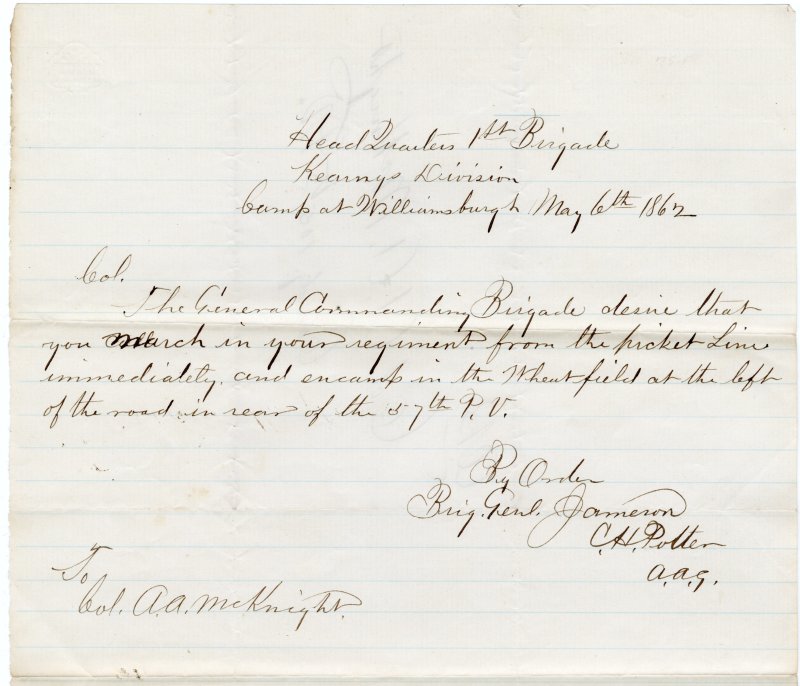 Head Quarters 1st Brigade
Kearnys Division
Camp at Williamsburgh May 6th 1862
Col.
The General Commanding Brigade desire that
you march in your regiment from the picket Line
immediately, and encamp in the Wheat field at the left
of the road in rear of the 57th P.V.
By Order
Brig. Genl. Jameson
C.H. Potter
a.a.g.
To
Col. A.A. McKnight.